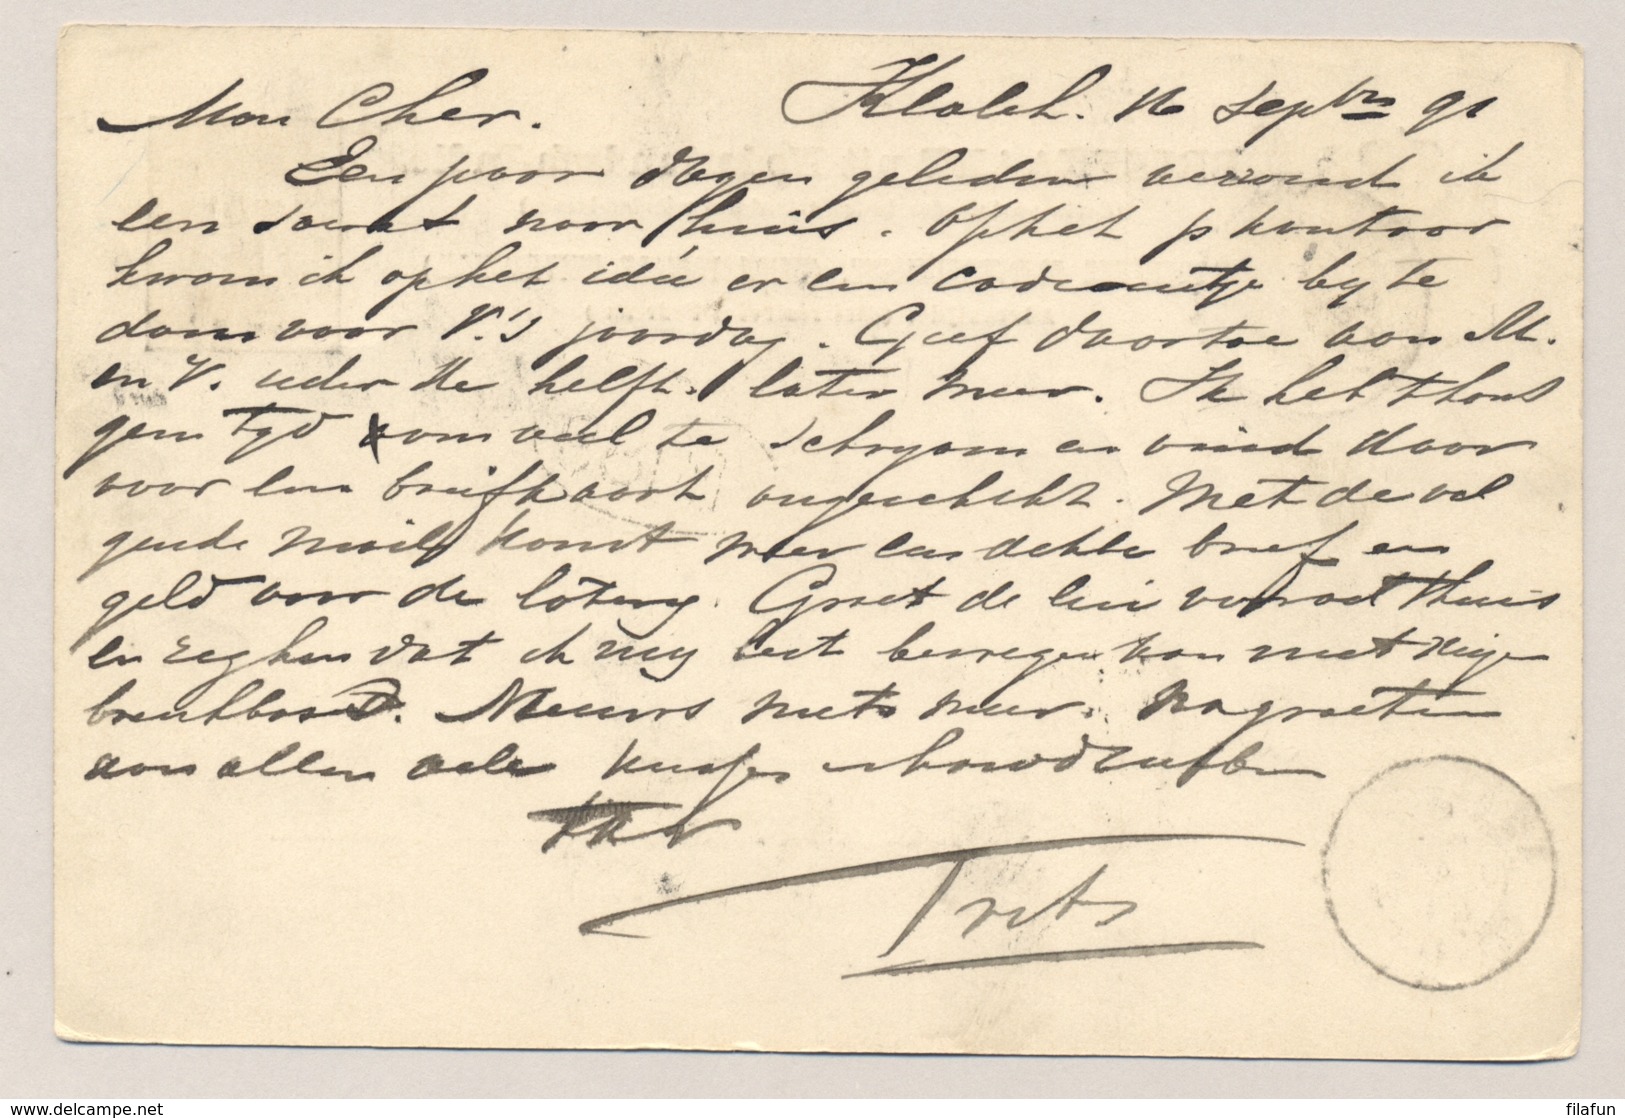 Mon Cher. Klatch. 16 Septbr 91
Een paar dagen geleden verzond ik
een naar huis. Op het pkantoor
kwam ik op het idée er een cadeautje by te
doen voor V.'s jaardag. Geef daartoe aan M.
en V. ieder de helft. Later meer. Ik heb thans
geen tyd om veel te schryven en vind daar
voor een briefkaart ongeschikt. Met de vol
gende mail komt weer een dikke brief en
geld voor de lotery. Groet de lui vooral thuis
en zeg hen dat ik my best
Nieuws niets meer. Na groeten
aan allen vele kusjes
Frits
www.delcampe.net filafun